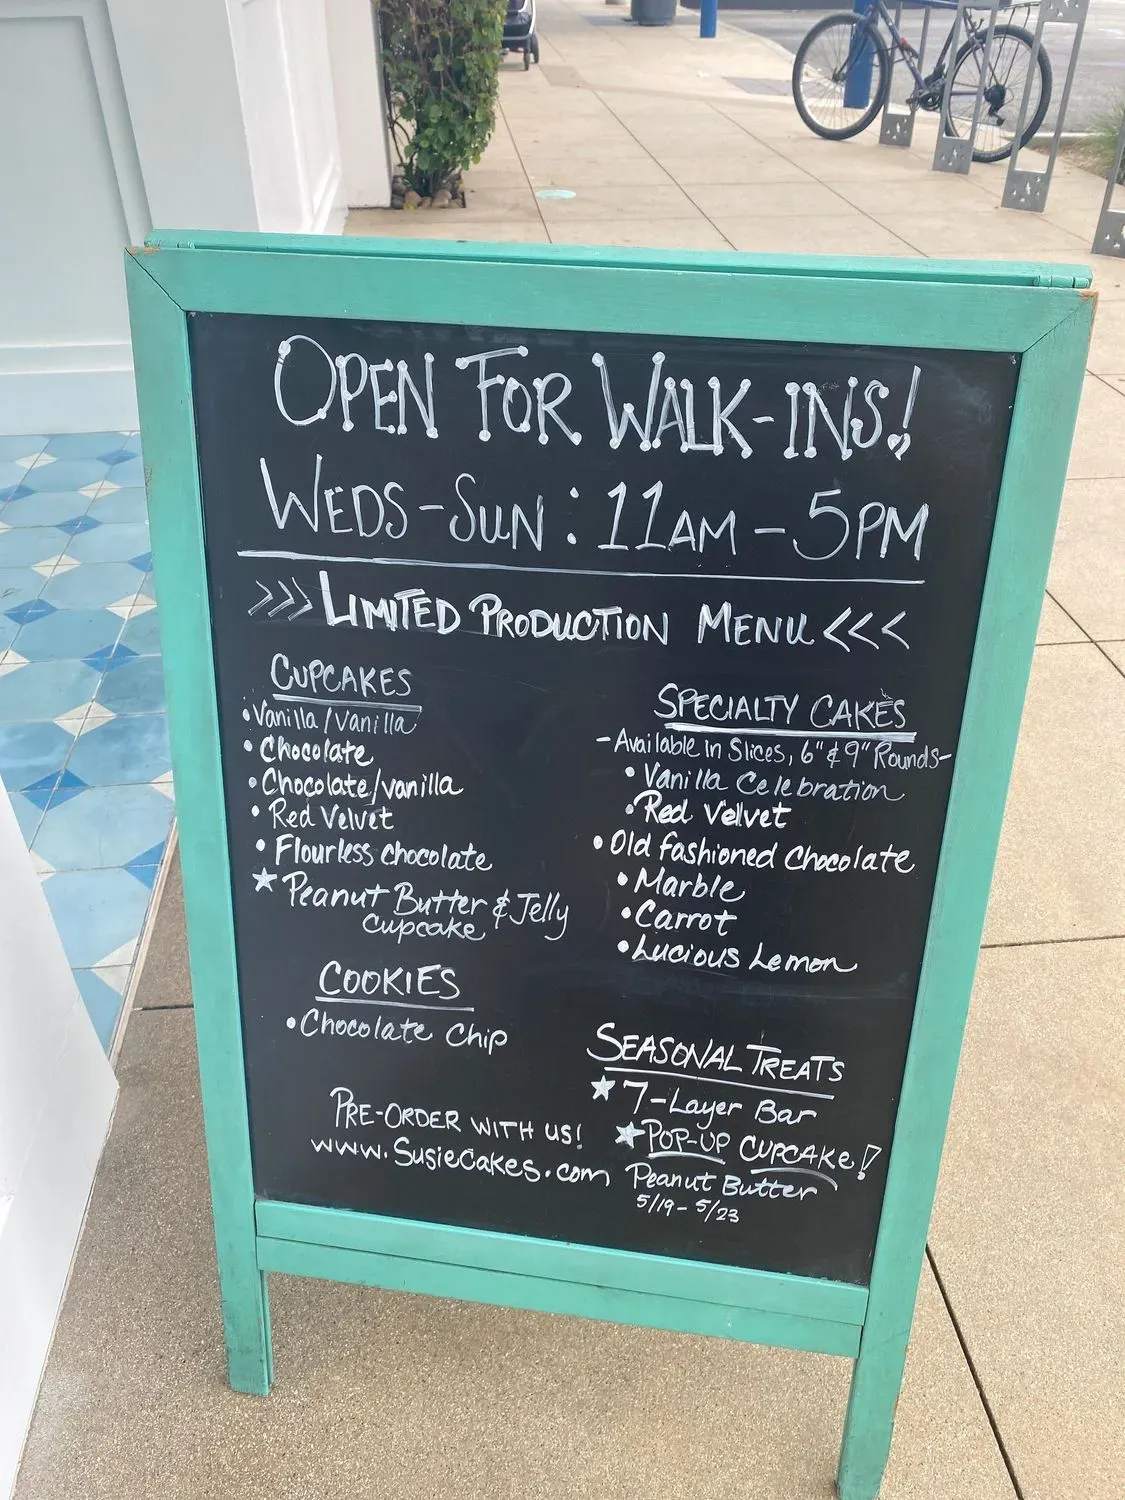 OPEN FOR WALK-INS!
WEDS-SUN: 11AM - 5PM
>>> LIMITED PRODUCTION MENU <<<
CUPCAKES
• Vanilla/Vanilla
• Chocolate
• Chocolate/vanilla
• Red Velvet
• Flourless chocolate
★ Peanut Butter & Jelly
cupcake
COOKIES
• Chocolate Chip
PRE-ORDER WITH US!
www.SusieCakes.com
SPECIALTY CAKES
- Available in Slices, 6" & 9" Rounds-
• Vanilla Celebration
• Red Velvet
• Old fashioned Chocolate
• Marble
• Carrot
• Lucious Lemon
SEASONAL TREATS
★ 7-Layer Bar
★ POP-UP CUPCAKE!
Peanut Butter
5/19 - 5/23